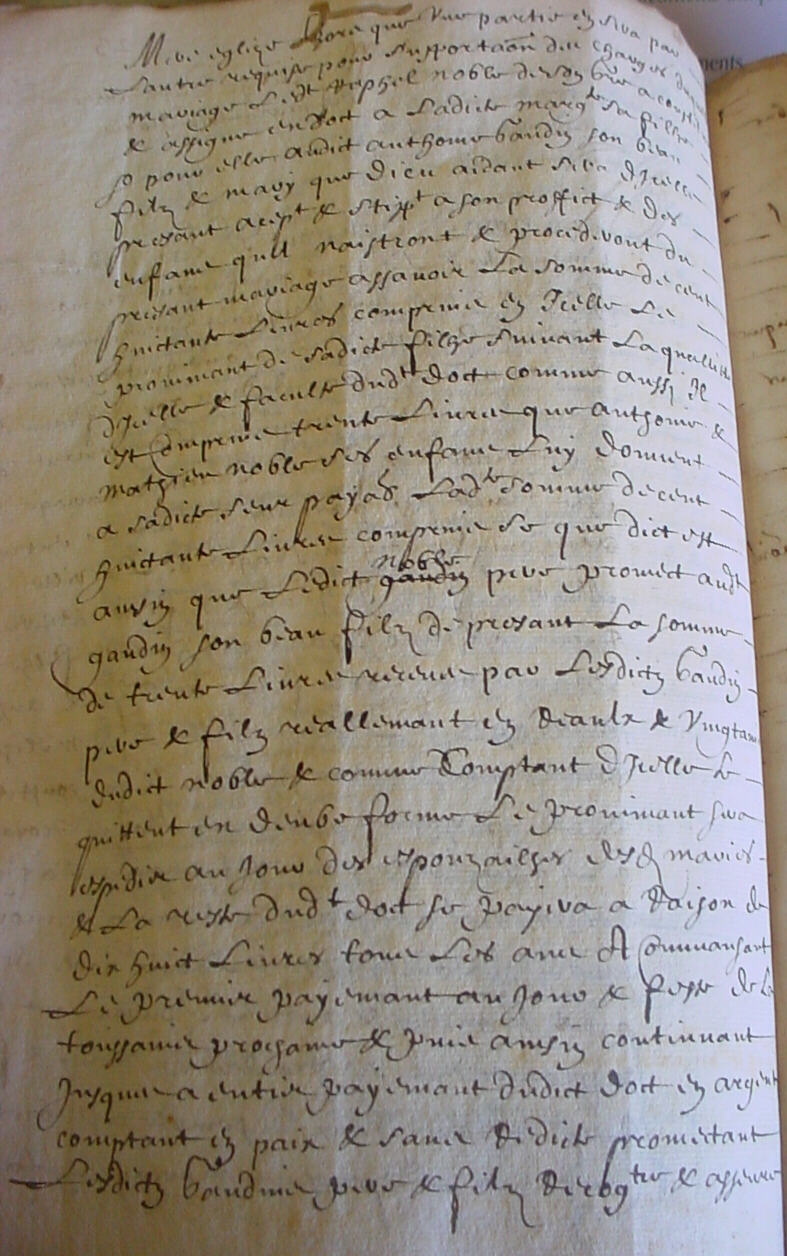 Mere eglize lhors que Une partie en sera par
Lautre requise pour suportaon des charges du
mariage Ledt noble de son bon a consti
& assigne en doct a Ladicte margte sa filhe
so pour elle audict anthome baudin son beau
filz & mary que dieu aidant sera dIcelle
presant acept & stipt a son proffict & des
enfans quil naistront & procediront du
presant mariage assavoir La somme de cent
huictante Livres comprins en Icelle Le
provimant de sadicte filhe suivant La quallite
dIcelle & faculte dudt doct comme aussi Il
est comprins trente Livres que anthome &
mathieu noble ses enfans Luy donnent
a sadicte seur payas Ladte somme de cent
huictante Livres comprins se que dict est
ansin que Ledict noble gaudin pere promect audt
gaudin son beau filz de presant La somme
de trente Livres receues par Lesdictz baudin
pere & filz reallemant en deaulx & Vingtains
dudict noble & comme Comptant dIcelle Le
quittent en deube forme Le provimant sera
expedie au Jour des espouzailhes desdz maries
& La reste dudt doct se payera a Raison de
dix huict Livres tous Les ans A Commansant
Le premier payemant au Jour & feste de la
toussains prochame & puis ansin continuant
Jusques a entier payemant dudict doct en argent
comptant en paix & sans dedicte promectant
Lesdictz baudins pere & filz & asseurer